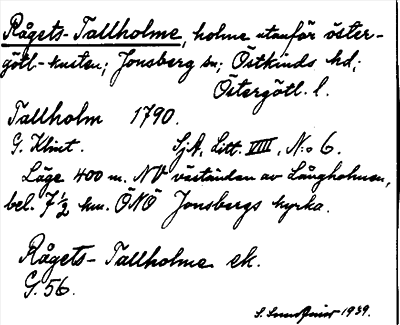 Rågets-Tallholme, holme utanför öster-
götl-kusten; Jonsberg sn; Östkinds hd;
Östergötl. l.
Tallholm 1790.
G. Klint. SjA, Litt. VIII, N:o 6.
Läge 400 m. NV väständan av Långholmen,
bel. 7½ km. ÖNÖ Jonsbergs kyrka.
Rågets-Tallholme ek.
G. 56.
S. 1939.